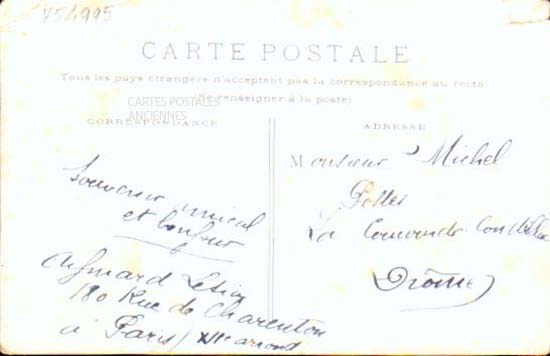 75/1995
CARTE POSTALE
Tous les pays étrangers n'acceptent pas la correspondance au recto
(Se renseigner à la poste)
CARTES POSTALES
ANCIENNES
CORRESPONDANCE
Souvenir amical
et bonjour
180 Rue de Charenton
à Paris
ADRESSE
Monsieur Michel
Postes
La
Drôme